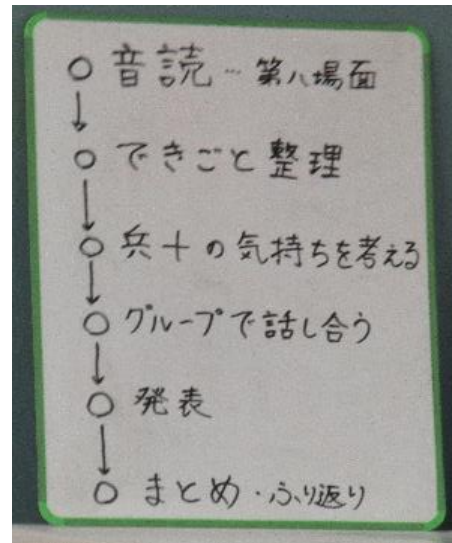 ○ 音読…第八場面
↓
○ できごと整理
↓
○ 兵十の気持ちを考える
↓
○ グループで話し合う
↓
○ 発表
↓
○ まとめ・ふり返り